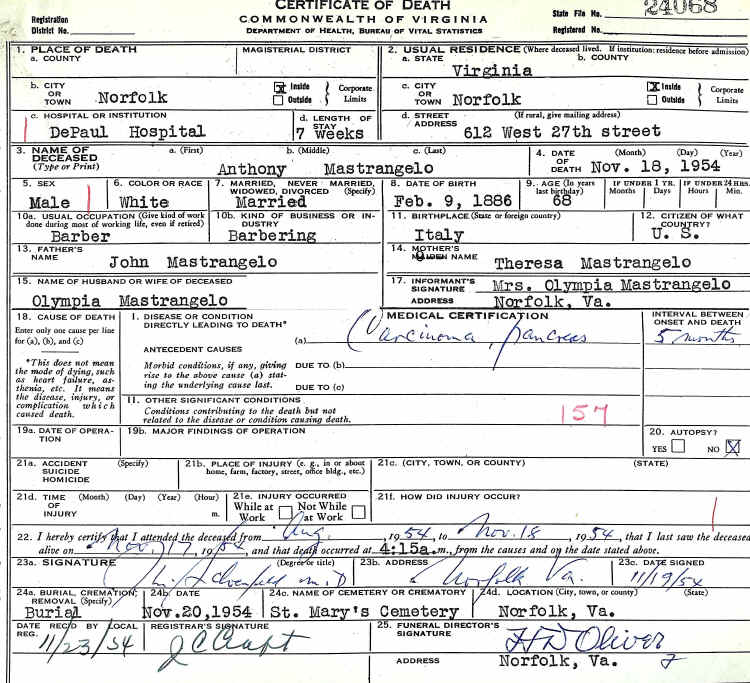 CERTIFICATE OF DEATH
COMMONWEALTH OF VIRGINIA
DEPARTMENT OF HEALTH, BUREAU OF VITAL STATISTICS
Registration District No.
State File No. 24068
Registered No.
1. PLACE OF DEATH
a. COUNTY
MAGISTERIAL DISTRICT
2. USUAL RESIDENCE (Where deceased lived. If institution: residence before admission)
a. STATE Virginia b. COUNTY
b. CITY OR TOWN Norfolk
Inside Outside Corporate Limits
c. CITY OR TOWN Norfolk
Inside Outside Corporate Limits
c. HOSPITAL OR INSTITUTION
DePaul Hospital
d. LENGTH OF STAY
7 Weeks
d. STREET ADDRESS (If rural, give mailing address)
612 West 27th street
3. NAME OF DECEASED (Type or Print)
a. (First) b. (Middle) c. (Last)
Anthony Mastrangelo
4. DATE OF DEATH (Month) (Day) (Year)
Nov. 18, 1954
5. SEX
Male
6. COLOR OR RACE
White
7. MARRIED, NEVER MARRIED, WIDOWED, DIVORCED (Specify)
Married
8. DATE OF BIRTH
Feb. 9, 1886
9. AGE (In years last birthday)
68
IF UNDER 1 YR. Months Days
IF UNDER 24 HRS. Hours Min.
10a. USUAL OCCUPATION (Give kind of work done during most of working life, even if retired)
Barber
10b. KIND OF BUSINESS OR INDUSTRY
Barbering
11. BIRTHPLACE (State or foreign country)
Italy
12. CITIZEN OF WHAT COUNTRY?
U. S.
13. FATHER'S NAME
John Mastrangelo
14. MOTHER'S MAIDEN NAME
Theresa Mastrangelo
15. NAME OF HUSBAND OR WIFE OF DECEASED
Olympia Mastrangelo
17. INFORMANT'S SIGNATURE Mrs. Olympia Mastrangelo
ADDRESS Norfolk, Va.
18. CAUSE OF DEATH
Enter only one cause per line for (a), (b), and (c)
*This does not mean the mode of dying, such as heart failure, asthenia, etc. It means the disease, injury, or complication which caused death.
MEDICAL CERTIFICATION
INTERVAL BETWEEN ONSET AND DEATH
I. DISEASE OR CONDITION DIRECTLY LEADING TO DEATH*
(a) Carcinoma, pancreas
5 months
ANTECEDENT CAUSES
Morbid conditions, if any, giving rise to the above cause (a) stating the underlying cause last.
DUE TO (b)
DUE TO (c)
II. OTHER SIGNIFICANT CONDITIONS
Conditions contributing to the death but not related to the disease or condition causing death.
157
19a. DATE OF OPERATION
19b. MAJOR FINDINGS OF OPERATION
20. AUTOPSY?
YES NO X
21a. ACCIDENT SUICIDE HOMICIDE (Specify)
21b. PLACE OF INJURY (e. g., in or about home, farm, factory, street, office bldg., etc.)
21c. (CITY, TOWN, OR COUNTY) (STATE)
21d. TIME OF INJURY (Month) (Day) (Year) (Hour) m.
21e. INJURY OCCURRED
While at Work Not While at Work
21f. HOW DID INJURY OCCUR?
22. I hereby certify that I attended the deceased from Aug., 1954, to Nov. 18, 1954, that I last saw the deceased
alive on Nov. 17, 1954, and that death occurred at 4:15a.m., from the causes and on the date stated above.
23a. SIGNATURE (Degree or title)
M.D
23b. ADDRESS
Norfolk Va.
23c. DATE SIGNED
11/19/54
24a. BURIAL, CREMATION, REMOVAL (Specify)
Burial
24b. DATE
Nov.20,1954
24c. NAME OF CEMETERY OR CREMATORY
St. Mary's Cemetery
24d. LOCATION (City, town, or county) (State)
Norfolk, Va.
DATE REC'D BY LOCAL REG.
11/23/54
REGISTRAR'S SIGNATURE
25. FUNERAL DIRECTOR'S SIGNATURE
H D Oliver
ADDRESS Norfolk, Va.